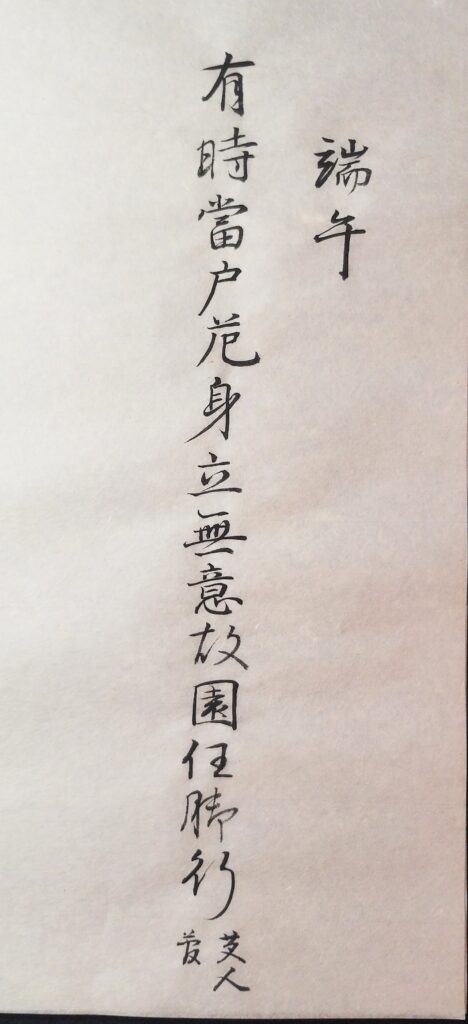 端午
有時當户危身立無意故園任脚行
艾人